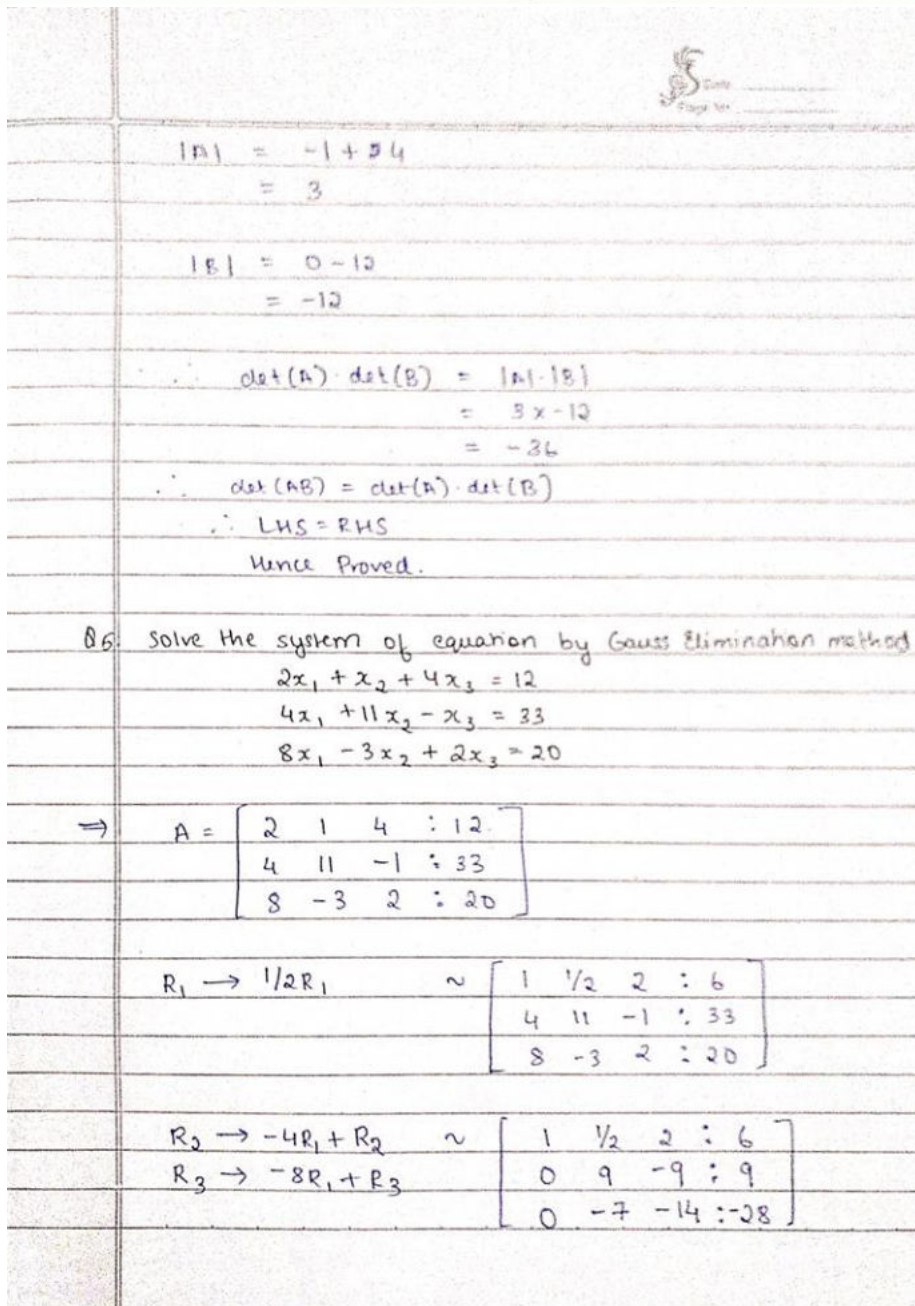 Date
Page No
|A| = -1 + 4
= 3
|B| = 0 - 12
= -12
∴ det(A) · det(B) = |A|·|B|
= 3 x -12
= -36
∴ det(AB) = det(A) · det(B)
∴ LHS = RHS
Hence Proved.
Q6. Solve the system of equation by Gauss Elimination method
2x₁ + x₂ + 4x₃ = 12
4x₁ + 11x₂ - x₃ = 33
8x₁ - 3x₂ + 2x₃ = 20
⇒ A = [ 2 1 4 : 12
4 11 -1 : 33
8 -3 2 : 20 ]
R₁ → 1/2R₁ ~ [ 1 1/2 2 : 6
4 11 -1 : 33
8 -3 2 : 20 ]
R₂ → -4R₁ + R₂ ~ [ 1 1/2 2 : 6
R₃ → -8R₁ + R₃ 0 9 -9 : 9
0 -7 -14 : -28 ]